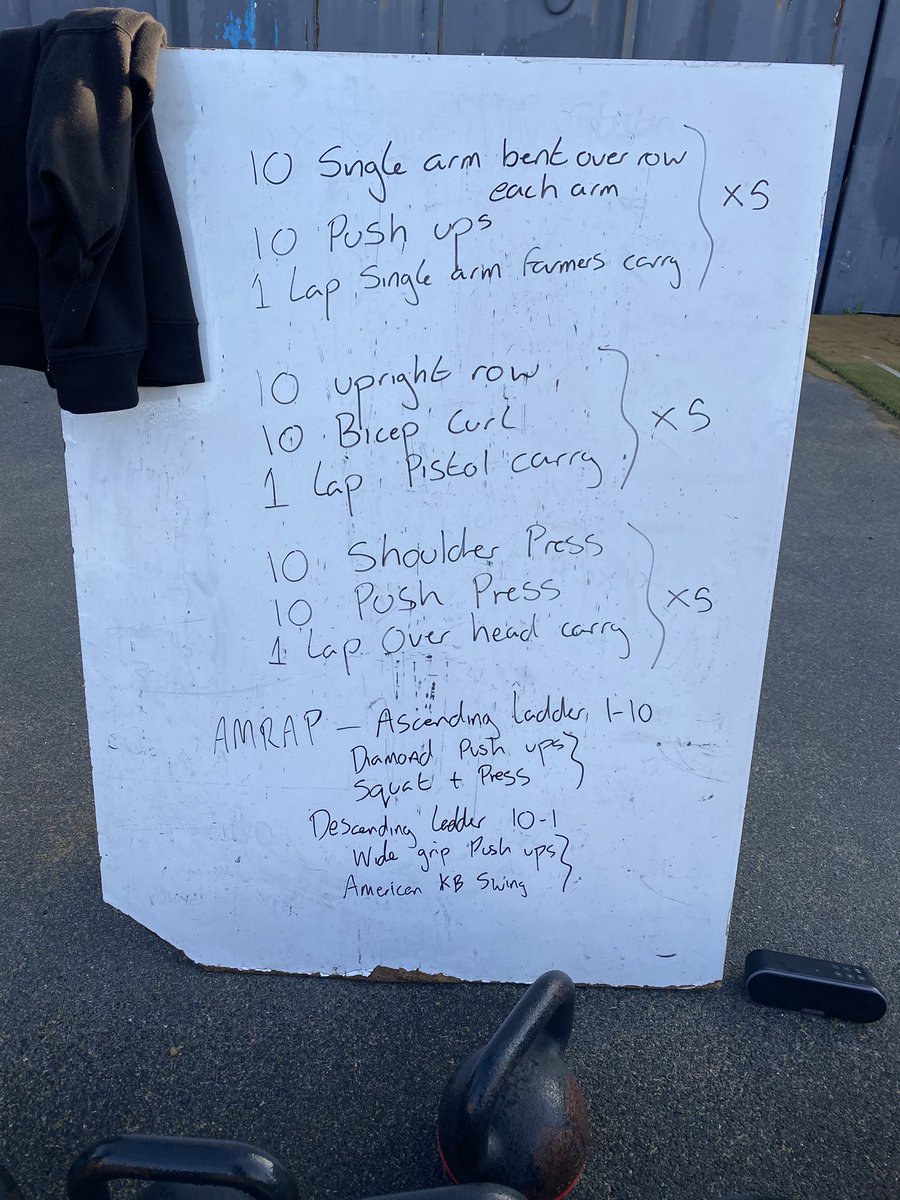 10 Single arm bent over row
each arm
10 Push ups
1 Lap Single arm farmers carry
x5
10 upright row
10 Bicep Curl
1 Lap Pistol carry
x5
10 Shoulder Press
10 Push Press
1 Lap Over head carry
x5
AMRAP - Ascending Ladder 1-10
Diamond Push ups
Squat + Press
Descending Ladder 10-1
Wide grip Push ups
American KB Swing